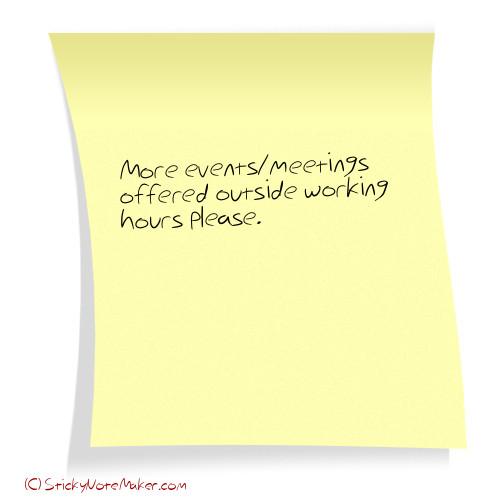 More events/meetings
offered outside working
hours please.
(C) StickyNoteMaker.com